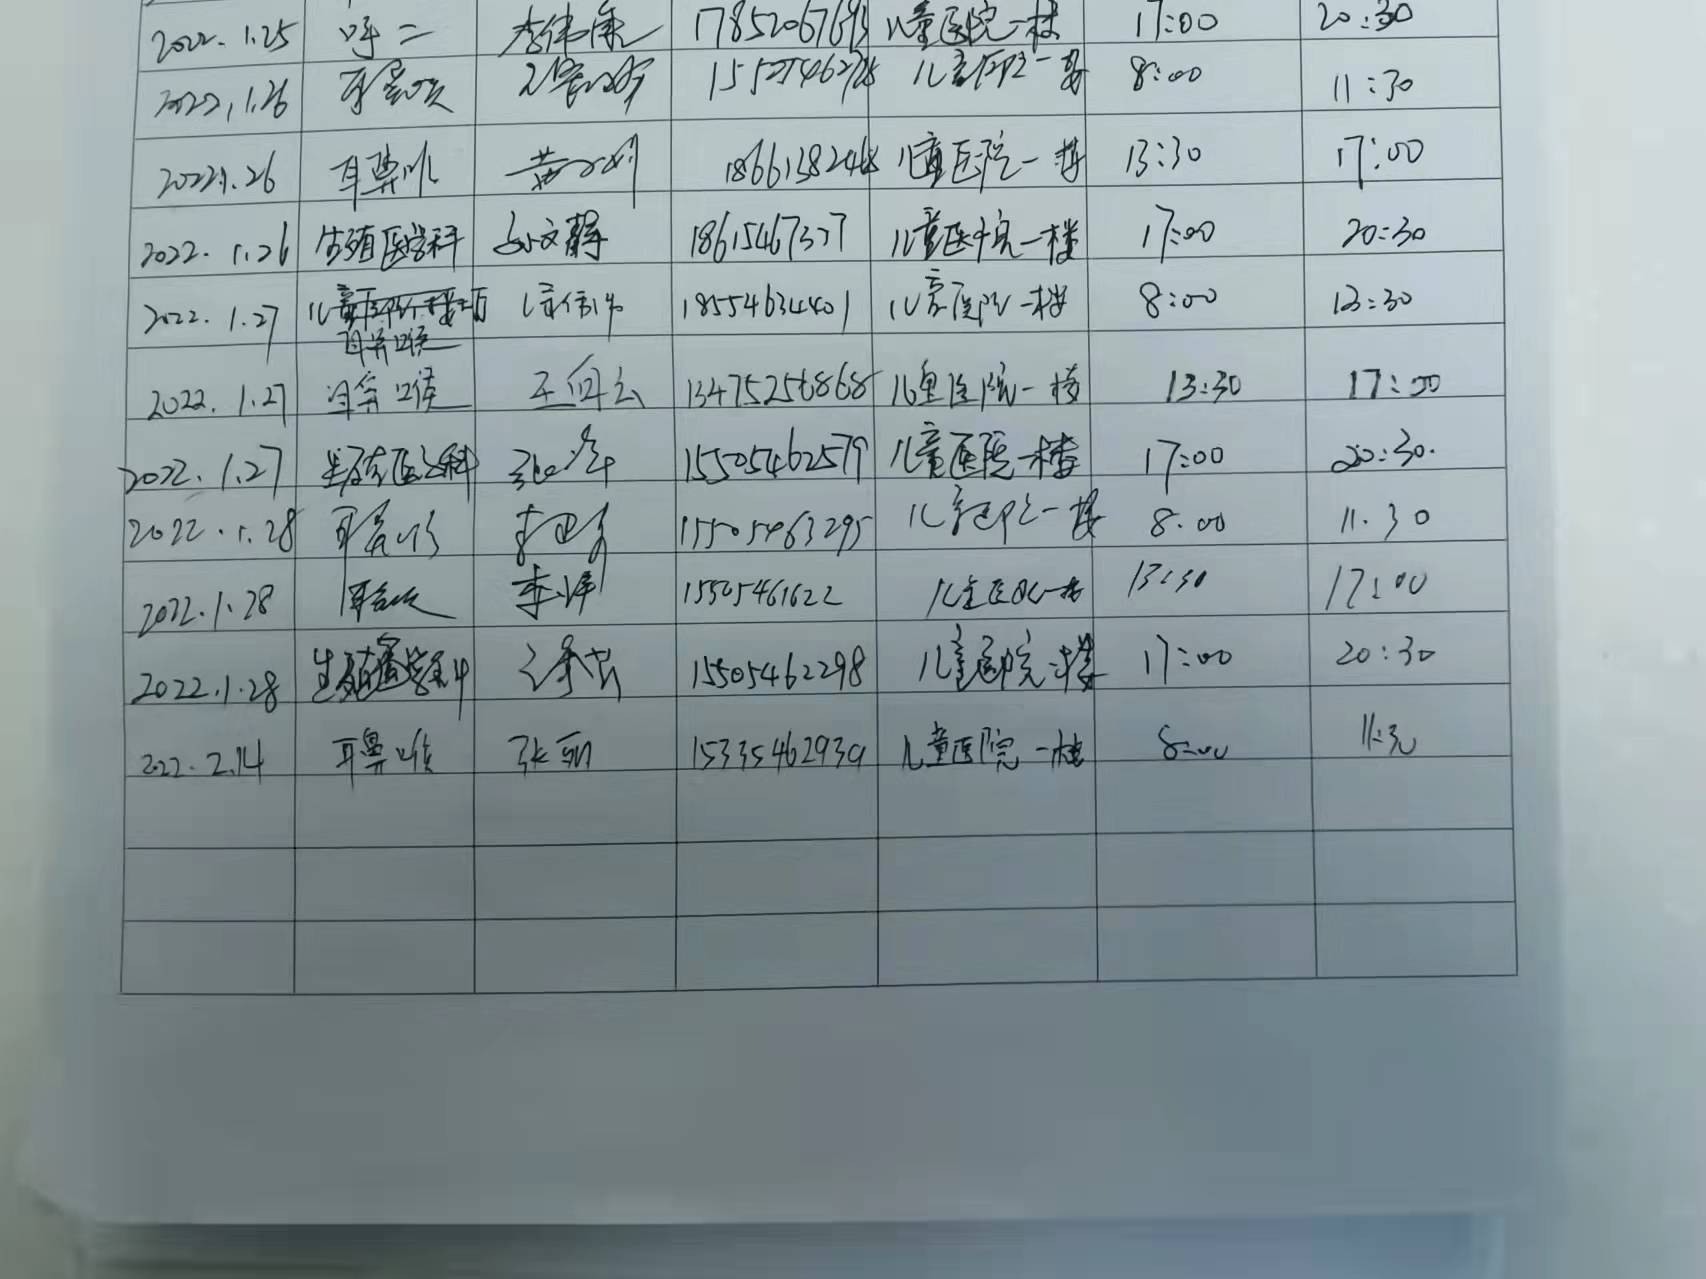 2022.1.25 呼二 李伟康 17852067693 儿童医院一楼 17:00 20:30
2022.1.26 耳鼻喉 儿童医院一楼 8:00 11:30
2022.1.26 耳鼻喉 黄 儿童医院一楼 13:30 17:00
2022.1.26 生殖医学科 文静 18615467377 儿童医院一楼 17:00 20:30
2022.1.27 18554634401 儿童医院一楼 8:00
耳鼻喉
2022.1.27 耳鼻喉 13475256868 儿童医院一楼 13:30 17:00
2022.1.27 生殖医学科 15505462579 儿童医院一楼 17:00 20:30.
2022.1.28 耳鼻喉 李 15505463295 儿童医院一楼 8:00 11:30
2022.1.28 耳鼻喉 李 15505461622 儿童医院一楼 13:30 17:00
2022.1.28 生殖医学科 15505462298 儿童医院一楼 17:00 20:30
2022.2.14 耳鼻喉 张丽 15335462939 儿童医院一楼 8:00 11:30